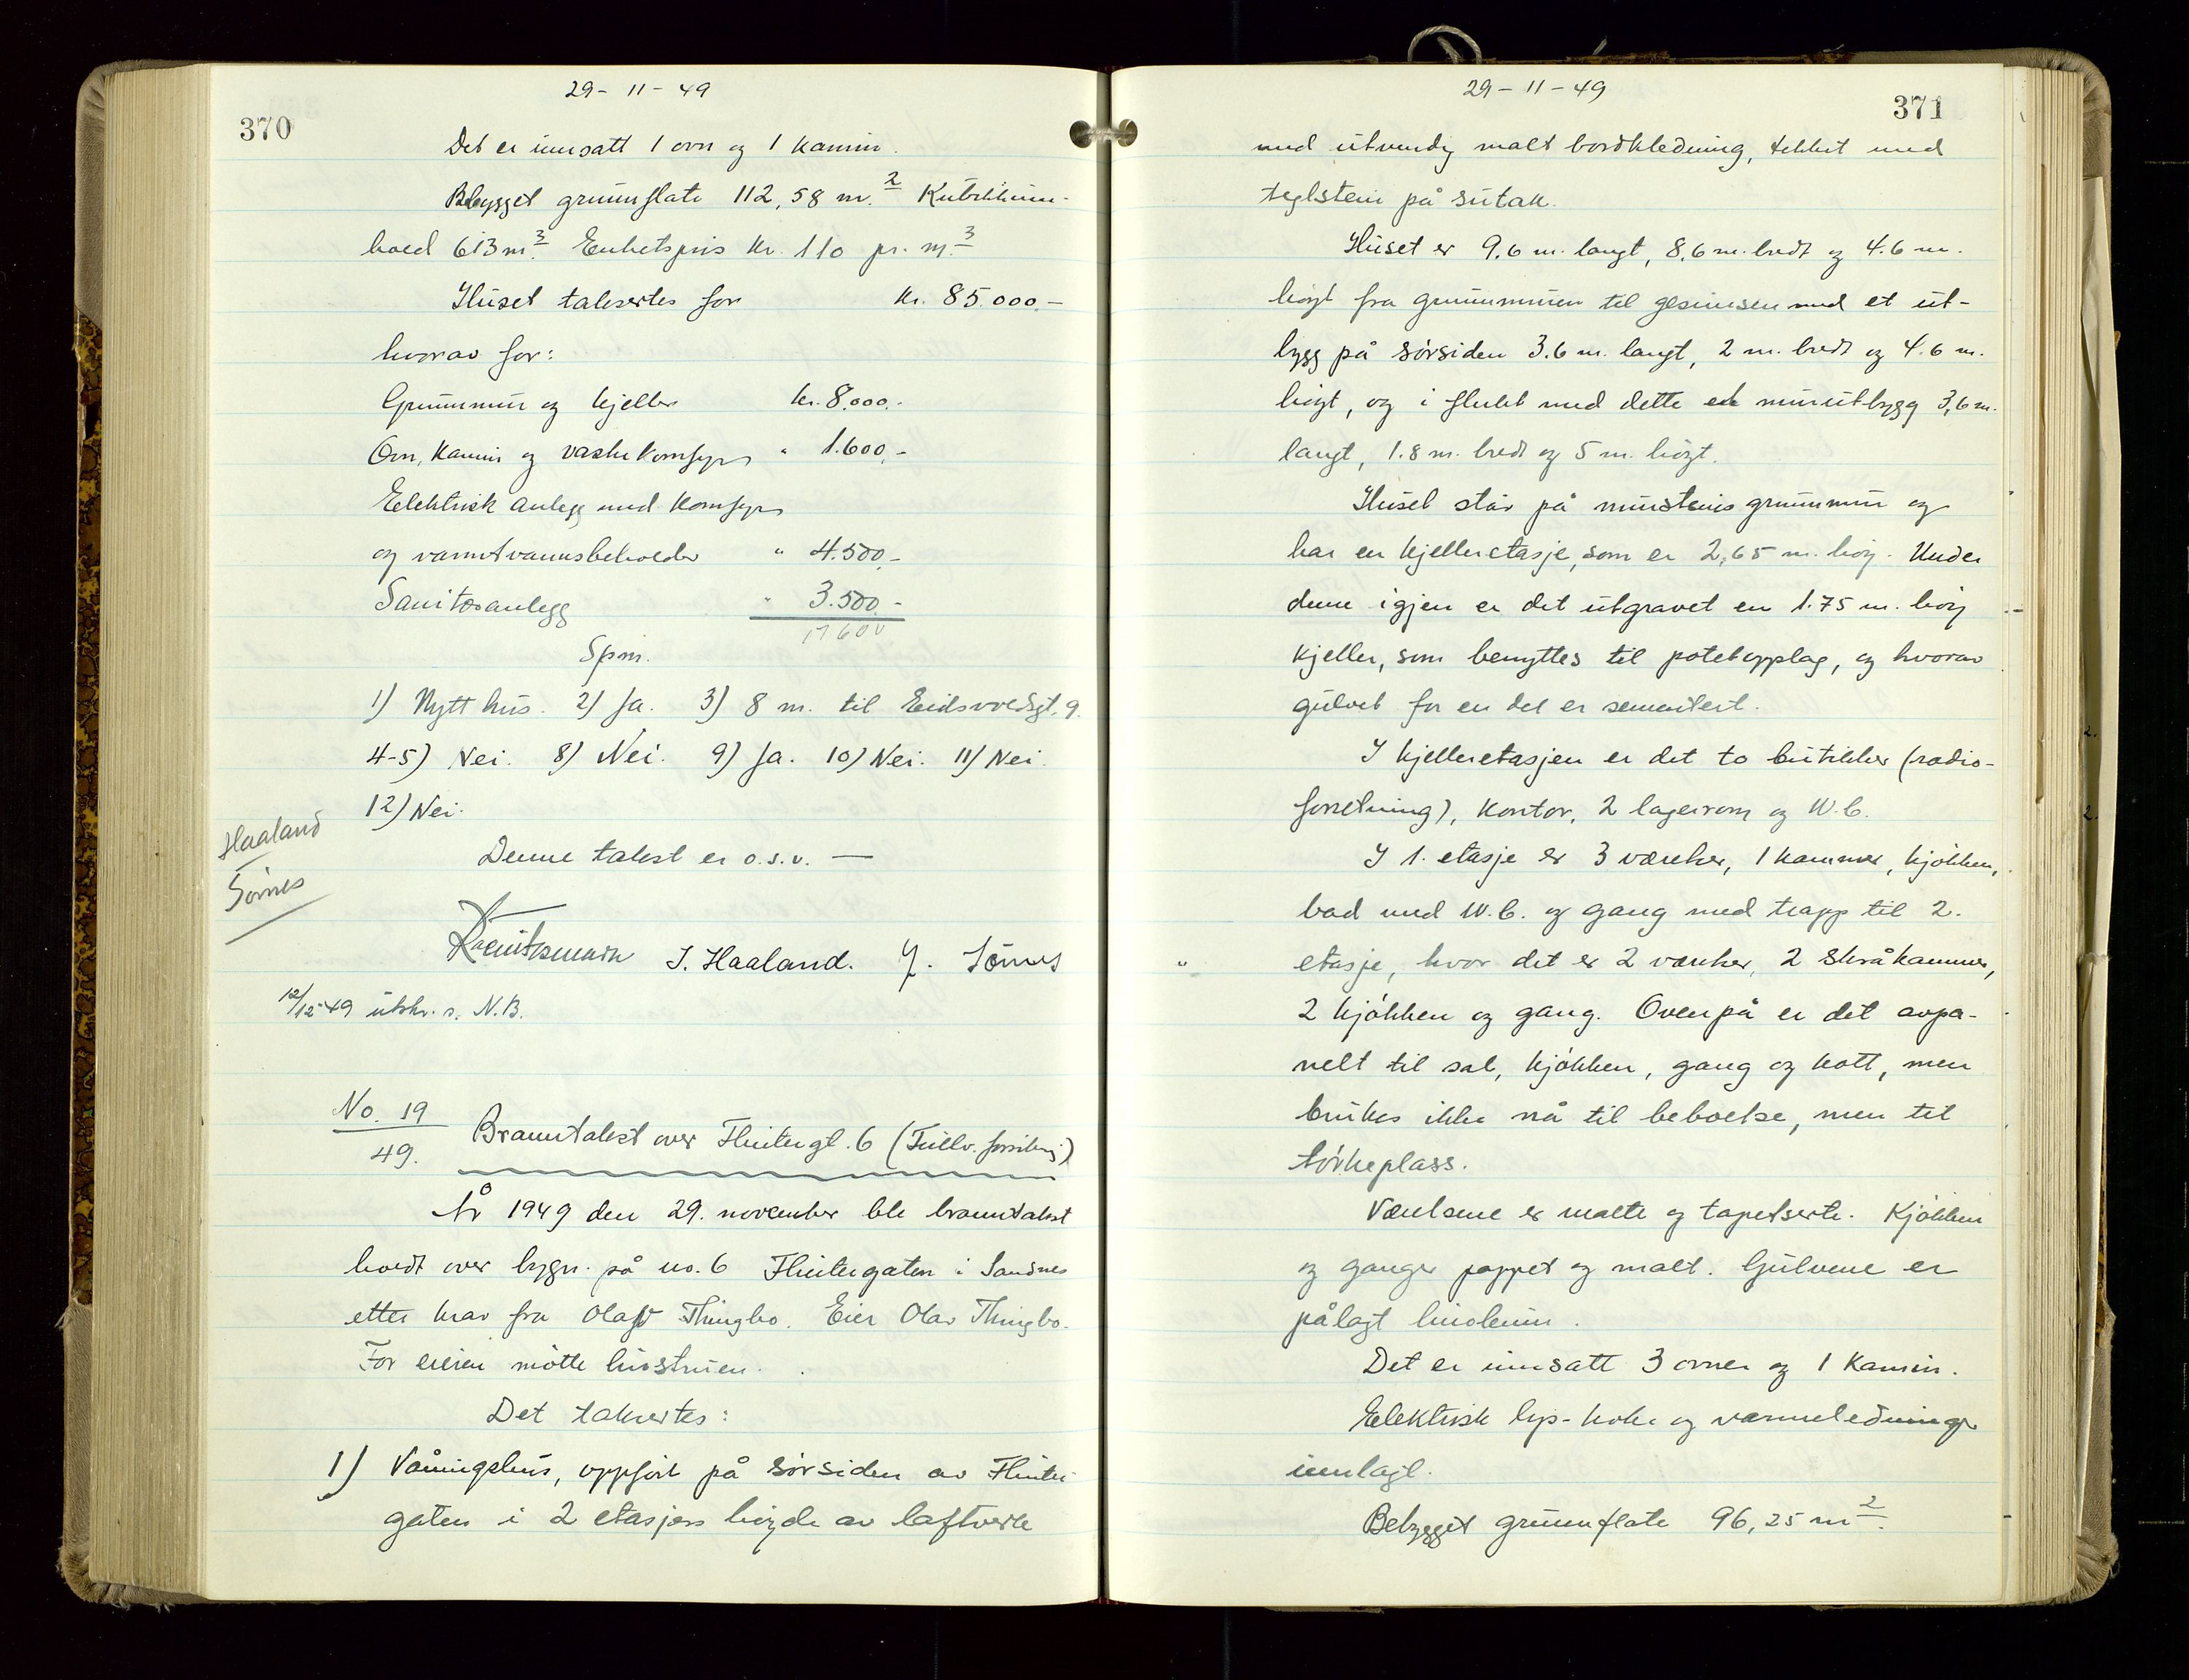 29 - 11 - 49
370
Det er innsatt 1 ovn og 1 kamin.
Bebygget grunnflate 112,58 m.² Kubikkinn-
hold 613 m.³ Enhetspris kr. 110 pr. m.³
Huset taksertes for kr. 85.000.-
hvorav for:
Grunnmur og kjeller kr. 8.000.-
Ovn, kamin og vaskekomfyr " 1.600,-
Eelektrisk anlegg med komfyr
og varmtvannsbeholder " 4.500,-
Sanitæranlegg " 3.500.-
17600
Spm.
1) Nytt hus. 2) Ja. 3) 8 m. til Eidsvoldsgt. 9.
4-5) Nei. 8) Nei. 9) Ja. 10) Nei. 11) Nei.
12) Nei.
Haaland
Denne takst er o.s.v. —
Sørnes
J. Haaland.
12/12-49 utskr. s. N.B.
No. 19
49.
Branntakst over Flintegt. 6
År 1949 den 29. november ble branntakst
holdt over bygn. på no. 6 Flintergaten i Sandnes
etter krav fra Olav Thingbo. Eier Olav Thingbo.
For eieren møtte hustruen.
Det taksertes:
1) Våningshus, oppført på sørsiden av Flinter-
gaten i 2 etasjers høyde av laftverk
29 - 11 - 49
371
med utvendig malt bordkledning, tekket med
teglstein på sutak.
Huset er 9.6 m. langt, 8,6 m. bredt og 4.6 m.
høyt fra grunnmuren til gesimsen med et ut-
bygg på sørsiden 3.6 m. langt, 2 m. bredt og 4.6 m.
høyt, og i flukt med dette et murutbygg 3,6 m.
langt, 1.8 m. bredt og 5 m. høyt.
Huset står på murstens grunnmur og
har en kjelleretasje, som er 2,65 m. høy. Under
denne igjen er det utgravet en 1.75 m. høy
kjeller, som benyttes til potetopplag, og hvorav
gulvet for en del er sementert.
I kjelleretasjen er det to butikker (radio-
forretning), kontor, 2 lagerrom og W.C.
I 1. etasje er 3 værelser, 1 kammer, kjøkken,
bad med W.C. og gang med trapp til 2.
etasje, hvor det er 2 værelser, 2 skråkammer,
2 kjøkken og gang. Ovenpå er det avpa-
nelt til sal, kjøkken, gang og kott, men
brukes ikke nå til beboelse, men til
tørkeplass.
Værelsene er malte og tapetserte. Kjøkken
og ganger pappet og malt. Gulvene er
pålagt linoleum.
Det er innsatt 3 ovner og 1 kamin.
Eelektrisk lys- koke og varmeledninger
innlagt.
Bebygget grunnflate 96,25 m².